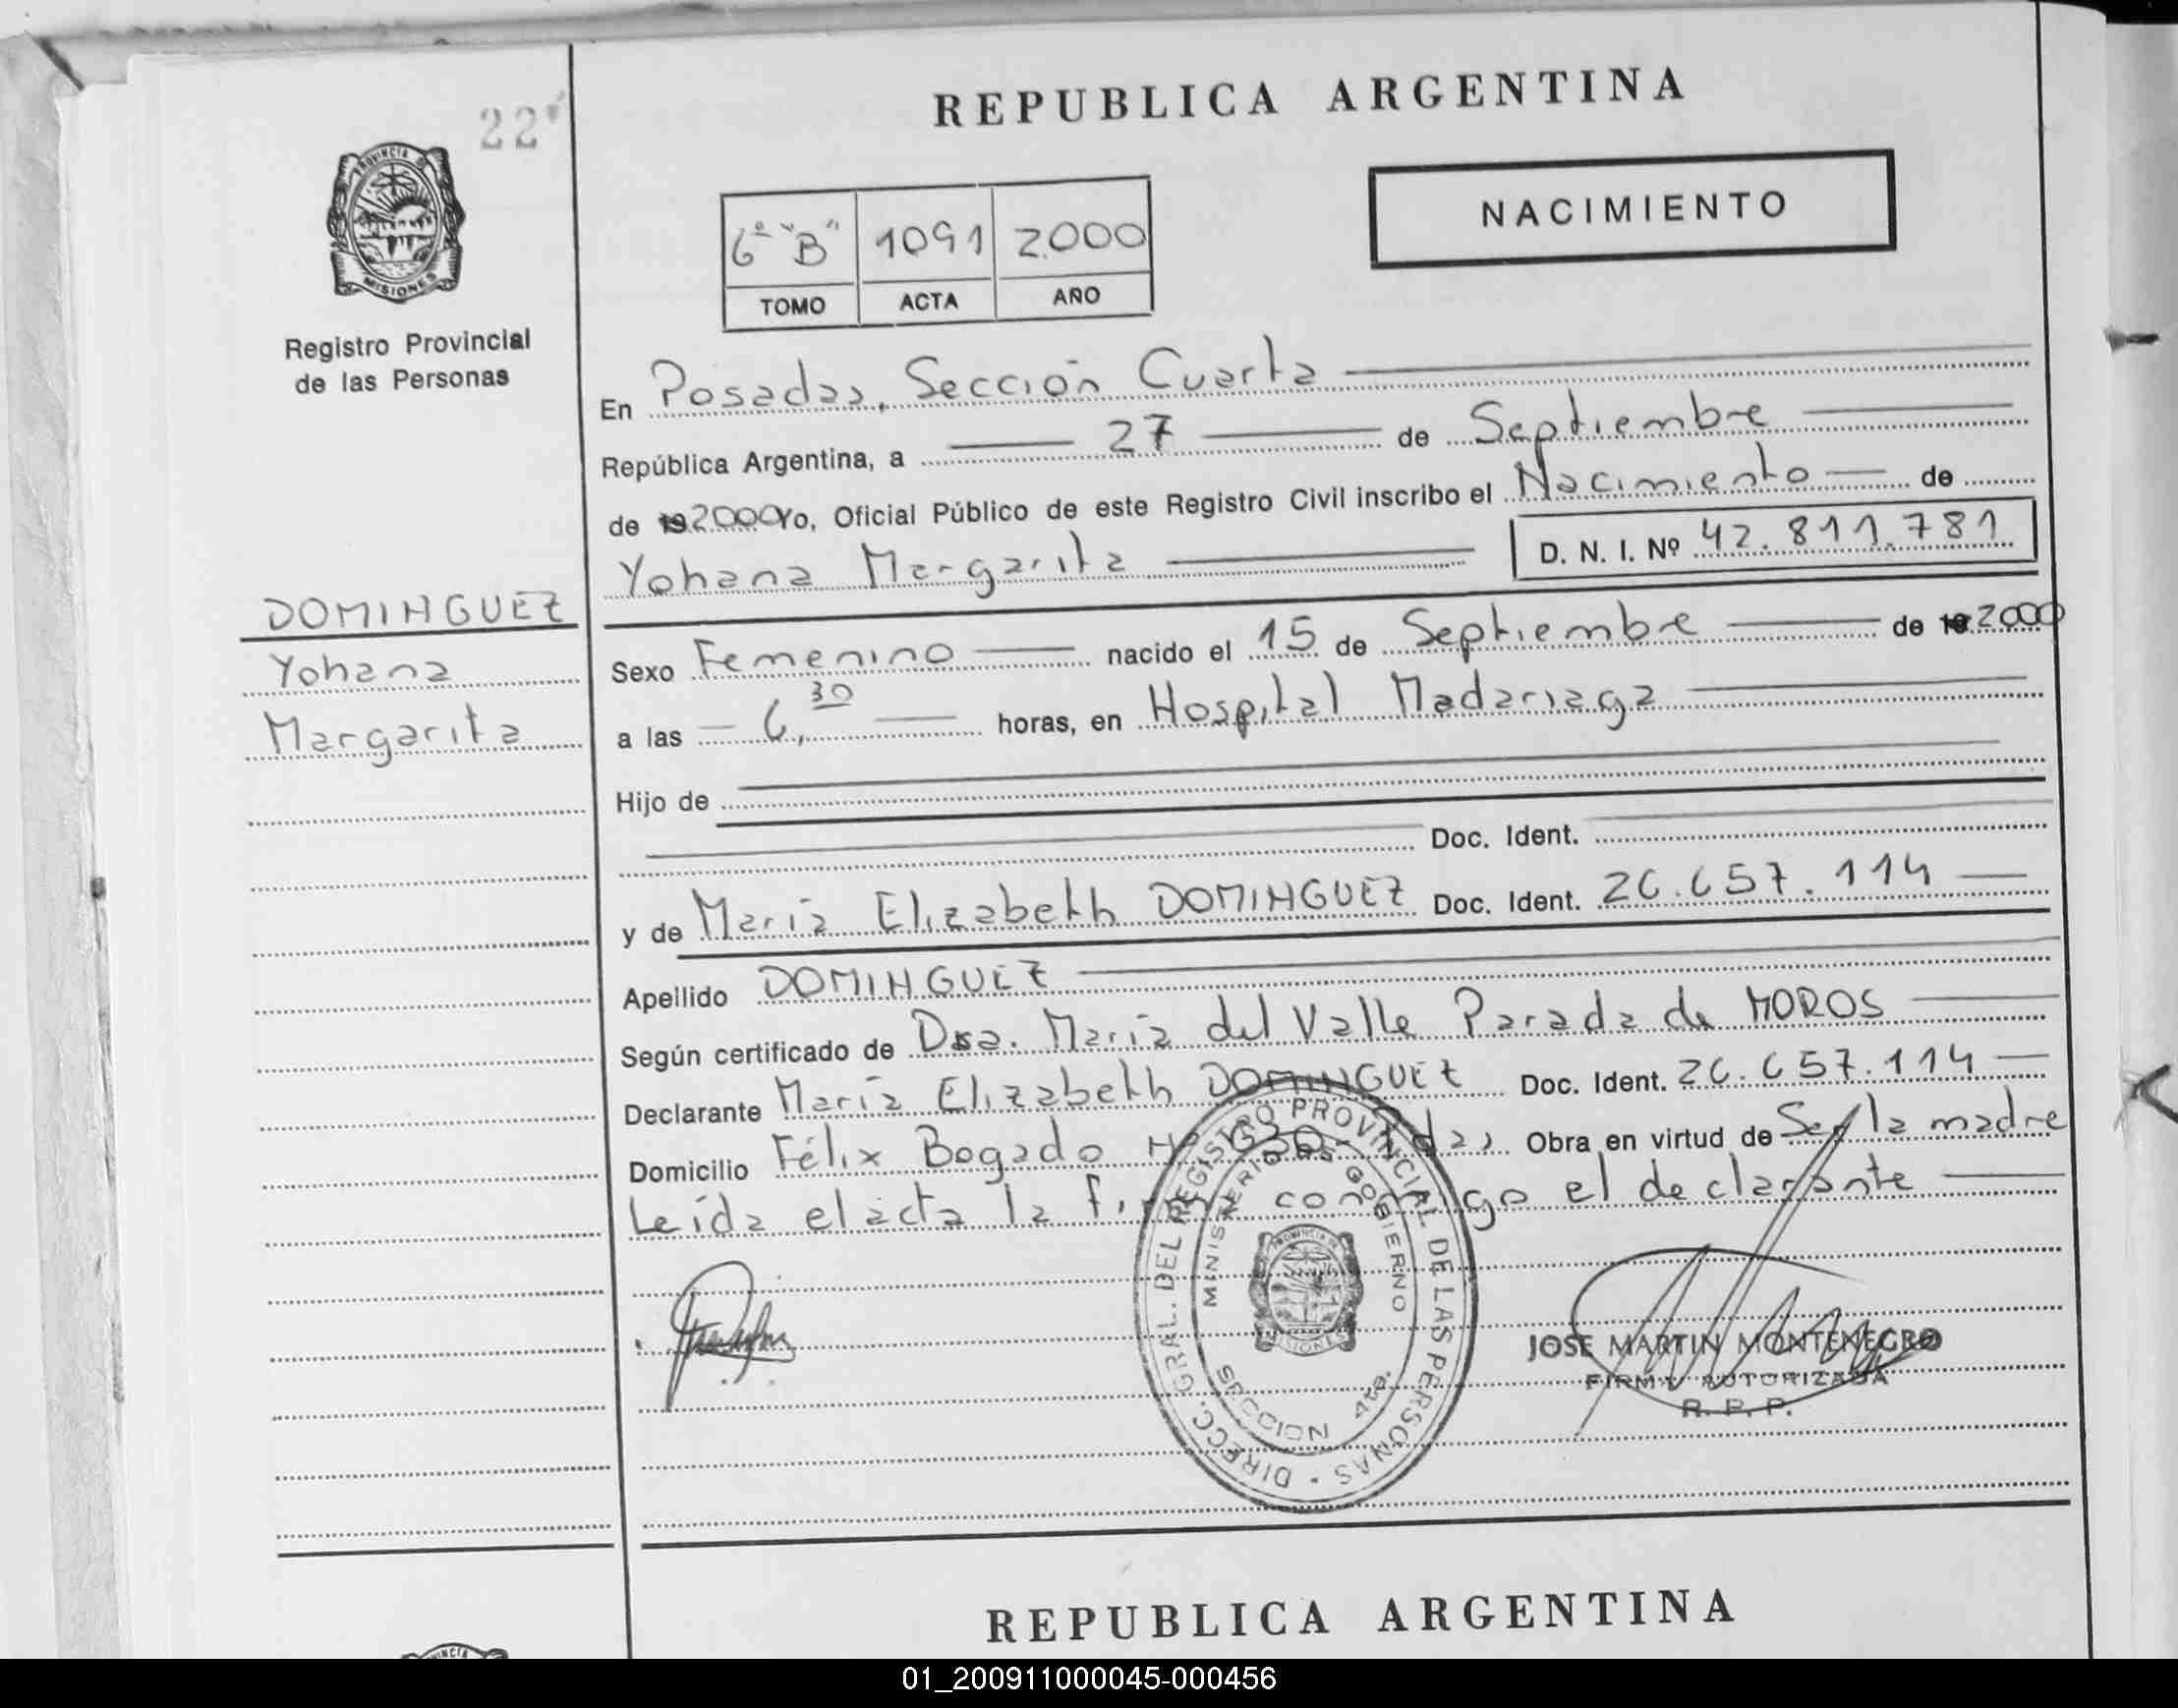 REPUBLICA ARGENTINA
22
PROVINCIA DE
MISIONES
Registro Provincial
de las Personas
NACIMIENTO
6º "B" 1091 2000
TOMO ACTA AÑO
En Posadas, Sección Cuarta
República Argentina, a 27 de Septiembre
de 19 2000 Yo, Oficial Público de este Registro Civil inscribo el Nacimiento de
Yohana Margarita D. N. I. Nº 42.811.781
DOMINGUEZ
Yohana
Margarita
Sexo Femenino nacido el 15 de Septiembre de 19 2000
a las 6,30 horas, en Hospital Madariaga
Hijo de
Doc. Ident.
y de María Elizabeth DOMINGUEZ Doc. Ident. 26.657.114
Apellido DOMINGUEZ
Según certificado de Dra. María del Valle Parada de MOROS
Declarante María Elizabeth DOMINGUEZ Doc. Ident. 26.657.114
Domicilio Félix Bogado Nº Obra en virtud de Ser la madre
Leída el acta la firma conmigo el declarante
DIRECC. GRAL. DEL REGISTRO PROVINCIAL DE LAS PERSONAS
MINISTERIO DE GOBIERNO
SECCION 4ta.
JOSE MARTIN MONTENEGRO
FIRMA AUTORIZADA
R. P. P.
REPUBLICA ARGENTINA
01_200911000045-000456